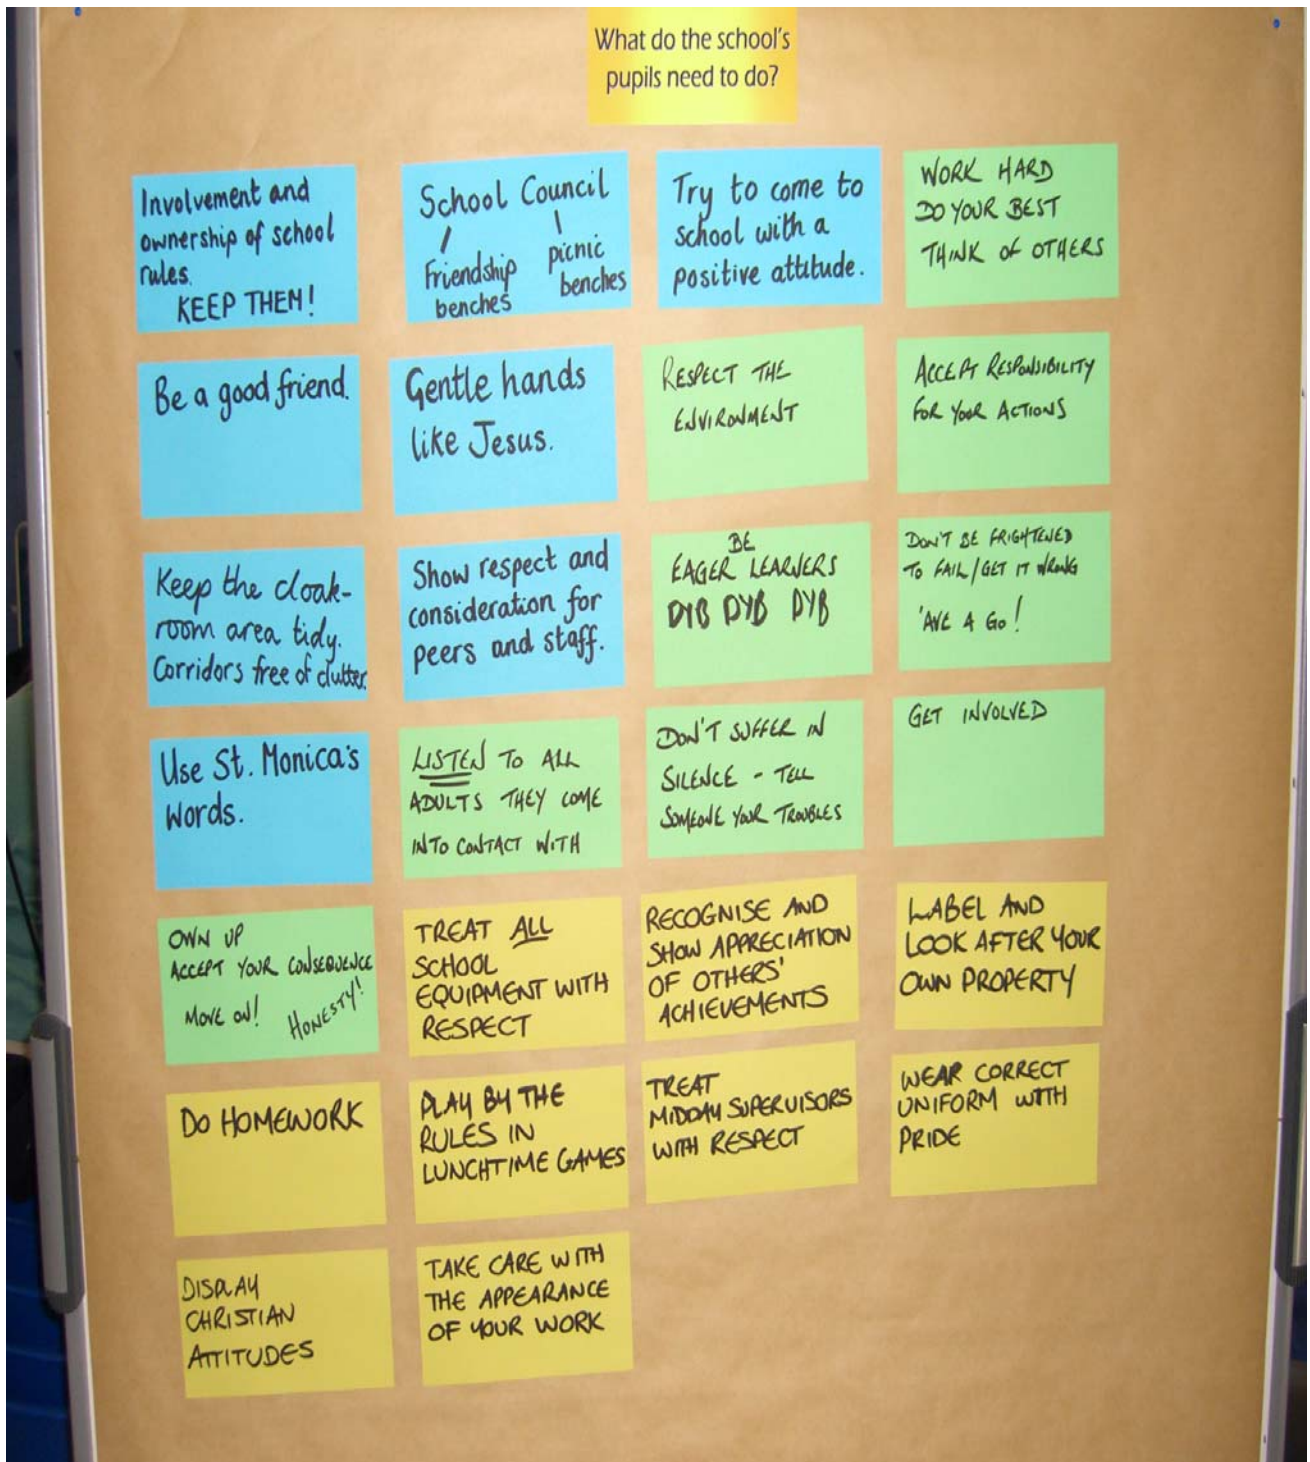 What do the school's
pupils need to do?
Involvement and
ownership of school
rules.
KEEP THEM!
School Council
Friendship
benches
picnic
benches
Try to come to
school with a
positive attitude.
WORK HARD
DO YOUR BEST
THINK OF OTHERS
Be a good friend.
Gentle hands
like Jesus.
RESPECT THE
ENVIRONMENT
ACCEPT RESPONSIBILITY
FOR YOUR ACTIONS
Keep the cloak-
room area tidy.
Corridors free of clutter.
Show respect and
consideration for
peers and staff.
BE
EAGER LEARNERS
DYB DYB DYB
DON'T BE FRIGHTENED
TO FAIL/GET IT WRONG
'AVE A GO!
Use St. Monica's
Words.
LISTEN TO ALL
ADULTS THEY COME
INTO CONTACT WITH
DON'T SUFFER IN
SILENCE - TELL
SOMEONE YOUR TROUBLES
GET INVOLVED
OWN UP
ACCEPT YOUR CONSEQUENCE
MOVE ON!
HONESTY!
TREAT ALL
SCHOOL
EQUIPMENT WITH
RESPECT
RECOGNISE AND
SHOW APPRECIATION
OF OTHERS'
ACHIEVEMENTS
LABEL AND
LOOK AFTER YOUR
OWN PROPERTY
DO HOMEWORK
PLAY BY THE
RULES IN
LUNCHTIME GAMES
TREAT
MIDDAY SUPERVISORS
WITH RESPECT
WEAR CORRECT
UNIFORM WITH
PRIDE
DISPLAY
CHRISTIAN
ATTITUDES
TAKE CARE WITH
THE APPEARANCE
OF YOUR WORK